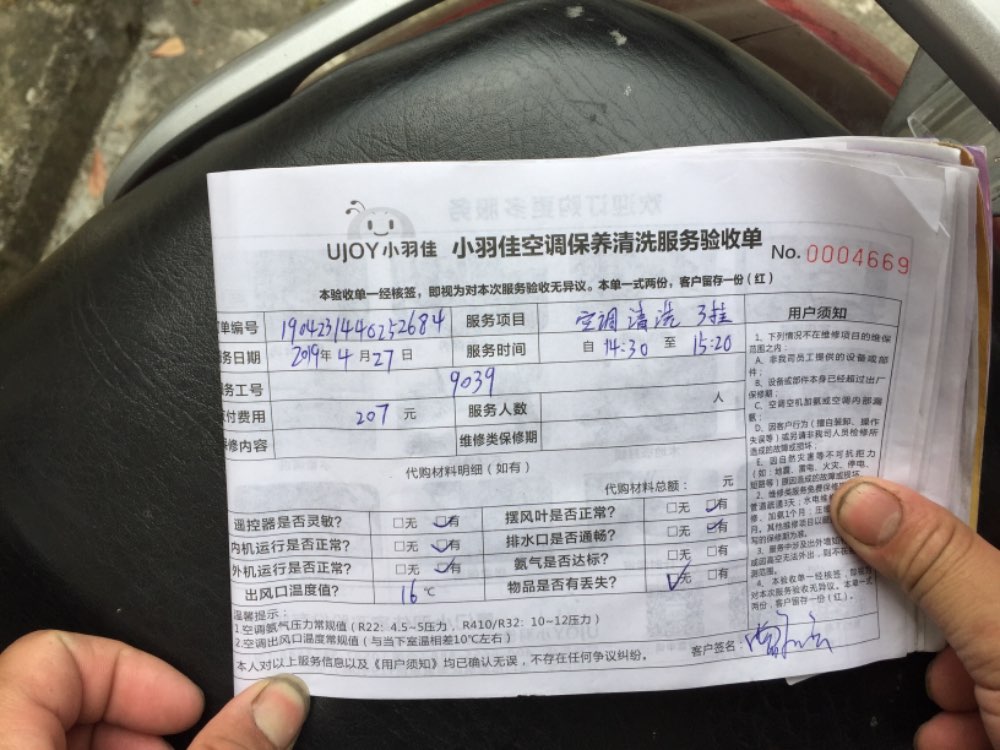 UJOY小羽佳 小羽佳空调保养清洗服务验收单 No. 0004669
本验收单一经核签，即视为对本次服务验收无异议。本单一式两份，客户留存一份（红）
单编号 190423144 服务项目 空调清洗 3挂
务日期 2019年4月27日 服务时间 自 14:30 至 15:20
务工号 9039
付费用 207 元 服务人数 人
修内容 维修类保修期
代购材料明细（如有）
代购材料总额： 元
遥控器是否灵敏？ □无 □有 摆风叶是否正常？ □无 □有
内机运行是否正常？ □无 □有 排水口是否通畅？ □无 □有
外机运行是否正常？ □无 □有 氨气是否达标？ □无 □有
出风口温度值？ 16 ℃ 物品是否有丢失？ □无 □有
温馨提示：
1.空调氨气压力常规值（R22：4.5~5压力，R410/R32：10~12压力）
2.空调出风口温度常规值（与当下室温相差10℃左右）
本人对以上服务信息以及《用户须知》均已确认无误，不存在任何争议纠纷。
客户签名：
用户须知
1、下列情况不在维修项目的维保
范围之内：
A、非我司员工提供的设备或部
件；
B、设备或部件本身已经超过出厂
保修期；
C、空调空机加氨或空调内部漏
氨；
D、因客户行为（擅自装卸、操作
失误等）或另请非我司人员检修所
造成的故障或损坏；
E、因自然灾害等不可抗拒力
（如：地震、雷电、火灾、停电、
短路等）原因造成的故障或损坏。
2、维修类服务免费保修
管道疏通3天；水电维
修、加氨1个月；压
月。其他维修项目以
写的保修期为准。
3、服务中涉及出外墙
或因高空无法外出，则不
测范围。
4、本验收单一经核签，即视为
对本次服务验收无异议。本单一式
两份，客户留存一份（红）。